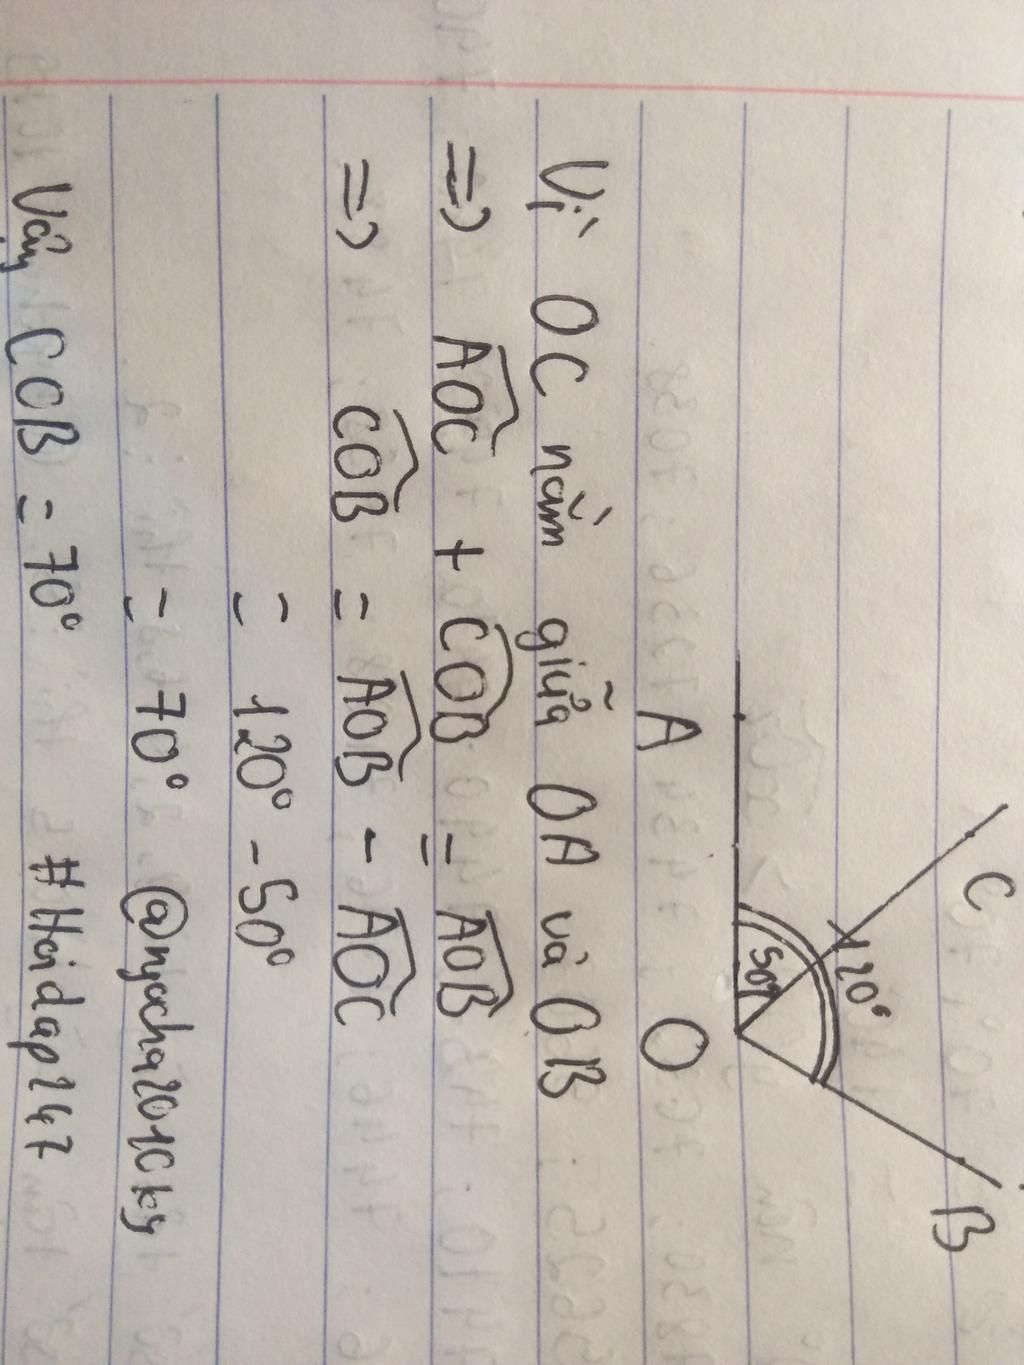 C
B
120°
50°
A O
Vì OC nằm giữa OA và OB
=> AOC + COB = AOB
=> COB = AOB - AOC
= 120° - 50°
= 70° @nyocha2010ky
Vậy COB = 70° #Hoidap247